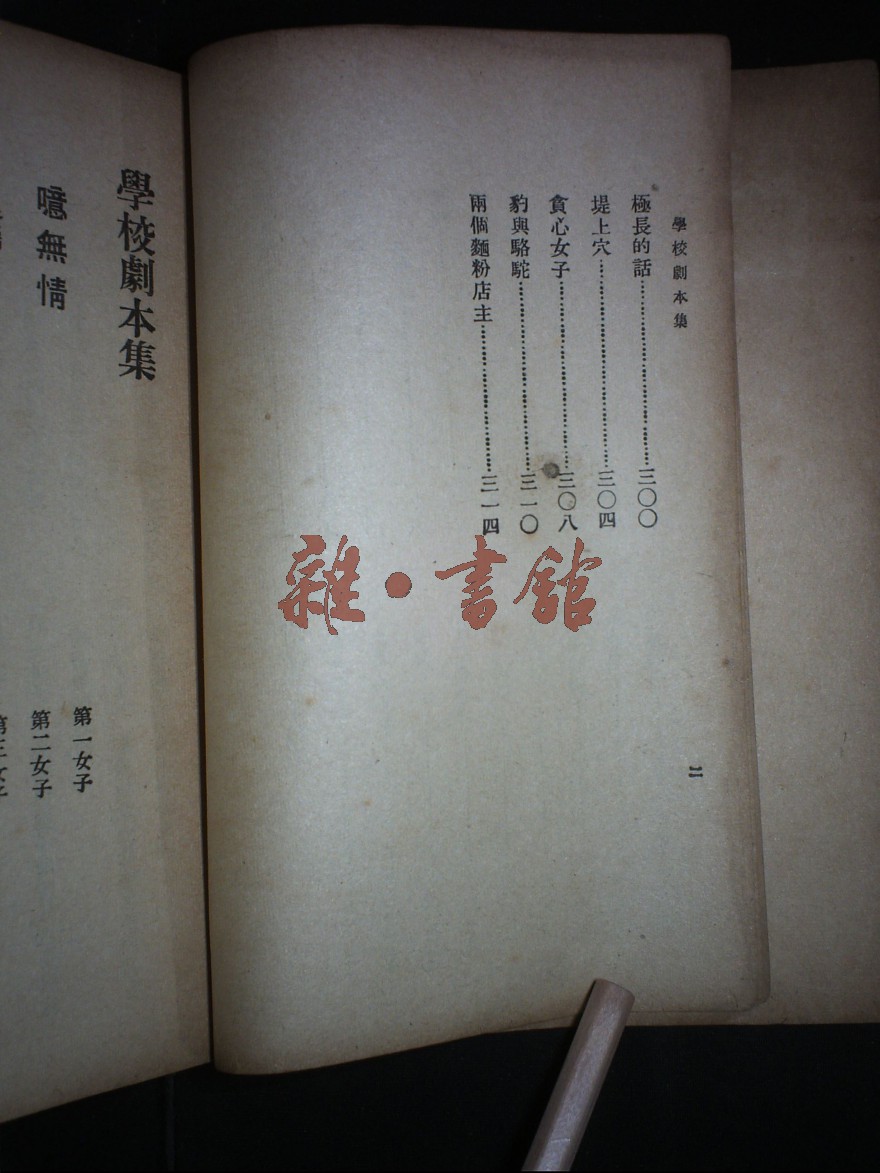 學校劇本集
極長的話……三〇〇
堤上穴……三〇四
貪心女子……三〇八
豹與駱駝……三一〇
兩個麵粉店主……三一四
二
雜・書館
學校劇本集
噫無情
第一女子
第二女子
第三女子